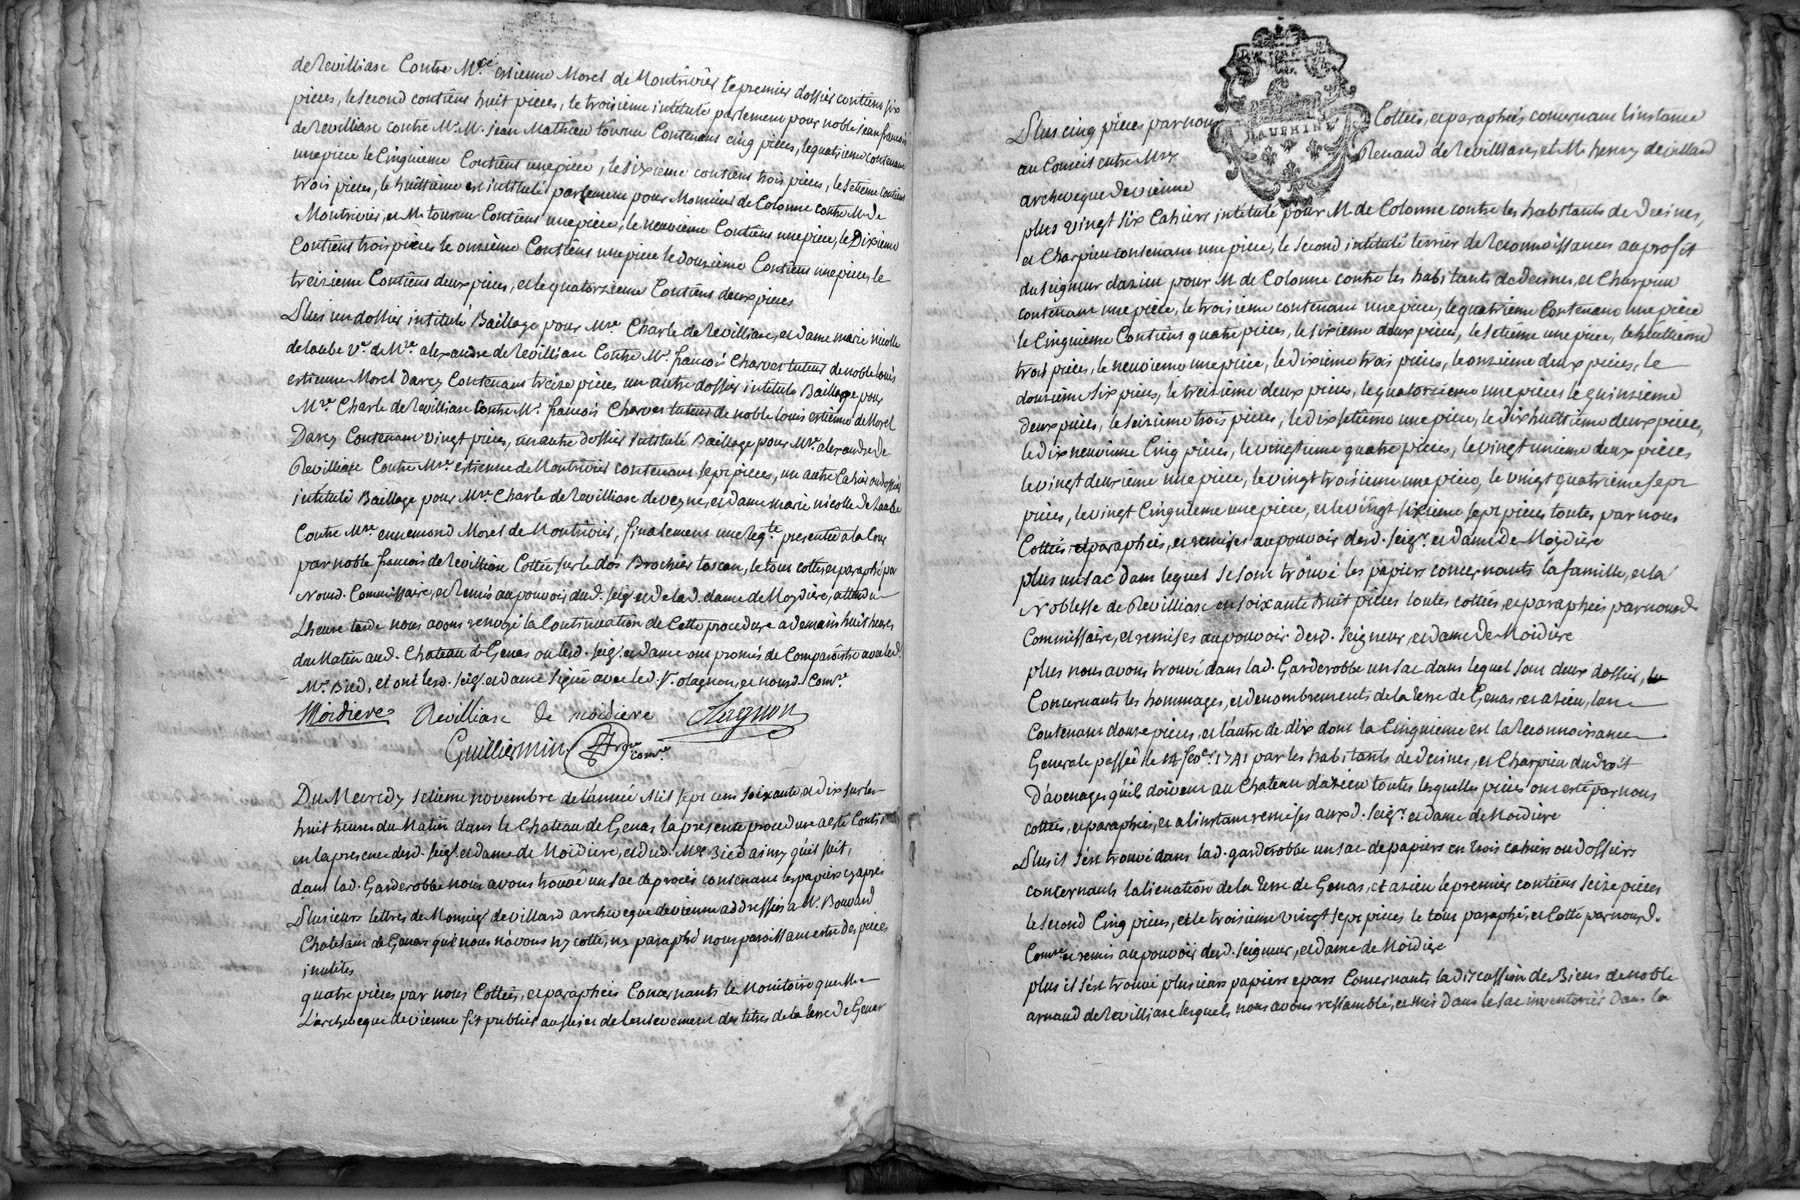 de Revilliase Contre Mre estienne Morel de Montrivier le premier dossier contient six
pieces, le second contiens huit pieces, le troisieme intitulé parlement pour noble jean francois
de Revilliase contre Mr Me jean Mathieu tourni Contenant cinq pieces, le quatrieme contenant
une piece le Cinquieme Contient une piece, le sixieme contient trois pieces, le setieme contient
trois pieces, le huittieme est intitulé parlement pour Monsieur de Colonne contre Mr de
Montrivier, et Me tournu Contient une piece, le neuvieme Contient une piece, le Dixieme
Contient trois pieces le onzieme Contient une piece le douzieme Contient une piece, le
treizieme Contient deux pieces, et le quatorzieme Contient deux pieces
Plus un dossier intitulé Baillage pour Mre Charle de Revilliase, et dame marie nicolle
de laube Ve de Mre alexandre de Revilliase Contre Mr francois Charvet tuteur de noble louis
estienne Morel Darcy Contenant treize pieces, un autre dossier intitulé Baillage pour
Mre Charle de Revilliase contre Mr francois Charvet tuteur de noble louis estienne de Morel
Darcy Contenant vingt pieces, un autre dossier intitulé Baillage pour Mre alexandre de
Revilliase Contre Mre estienne de Montrivier contenant sept pieces, un autre Cahier ou dossier
intitulé Baillage pour Mre Charle de Revilliase de veyne, et dame marie nicolle de laube
Contre Mre ennemond Morel de Montrivier, finalement une Reqte presentée a la Cour
par noble francois de Revilliase Cottée sur le dos Brochier toscan, le tout cotté et paraphé par
Nousd. Commissaire, et Remis au pouvoir dud. seigr et de lad. dame de Moidiere, attendu
L'heure tarde nous avons renvoyé la Continuation de Cette procedure a demain huit heures
du Matin aud. Chateau de Genas ou lesd. seigr et dame ont promis de Comparoitre avec led.
Mr Bied, et ont lesd. seigr et dame signé avec led. Sr olagnon, et nousd. Comre
Moidiere Revilliase de moidiere Olagnon
Guillermin comre
Du Mecredy setieme novembre de l'année Mil sept cens soixante et dix sur les
huit heures du Matin dans le Chateau de Genas la presente procedure a esté Contée
en la presence desd. seigr et dame de Moidiere, et dud. Mre Bied ainsy qu'il suit,
dans lad. Garderobbe nous avons trouvé un sac de procès contenant les papiers cy après
Plusieurs lettres de Monseigr de villard archeveque de vienne addressées a Mr Bouvard
Chatelain de Genas que nous n'avons ny cotté, ny paraphé nous paroissant estre des pieces
inutiles
quatre pieces par nous Cottées, et paraphées Concernants le Monitoire que Mr
L'archeveque de vienne fit publier au sujet de l'enlevement des titres de la terre de Genas
DAUPHINE
Plus cinq pieces par nous Cottées, et paraphées concernant l'instance
au Conseil entre Mrs Renaud de Revilliase, et Me henry de villard
archeveque de vienne
plus vingt six Cahiers intitulé pour M. de Colonne contre les habitants de Decines,
et Charpieu contenant une piece, le second intitulé terrier de Reconnoissances au profit
du seigneur d'azieu pour M. de Colonne contre les habitants de Decines, et Charpieu
contenant une piece, le troisieme contenant une piece, le quatrieme Contenant une piece
le Cinquieme Contient quatre pieces, le sixieme deux pieces, le setieme une piece, le huittieme
trois pieces, le neuvieme une piece, le dixieme trois pieces, le onzieme deux pieces, le
douzieme six pieces, le treizieme deux pieces, le quatorzieme une piece le quinzieme
deux pieces, le seizieme trois pieces, le dix setieme une piece, le dix huittieme deux pieces,
le dix neuvieme Cinq pieces, le vingtieme quatre pieces, le vingt unieme deux pieces
le vingt deuxieme une piece, le vingt troisieme une piece, le vingt quatrieme sept
pieces, le vingt Cinquieme une piece, et le vingt sixieme sept pieces toutes par nous
Cottées et paraphées, et remises au pouvoir desd. seigr et dame de Moidiere
plus un sac dans lequel se sont trouvé les papiers concernants la famille, et la
Noblesse de Revilliase en soixante huit pieces toutes cottées, et paraphées par nousd.
Commissaire, et remises au pouvoir desd. seigneur, et dame de Moidiere
plus nous avons trouvé dans lad. Garderobbe un sac dans lequel sont deux dossiers,
Concernants les hommages, et denombrements de la terre de Genas et azieu, l'un
Contenant douze pieces, et l'autre de dix dont la Cinquieme est la Reconnoissance
Generale passée le 14 febr. 1741 par les habitants de Decines, et Charpieu du droit
d'avenages qu'ils doivent au Chateau d'azieu toutes lesquelles pieces ont esté par nous
cottées, et paraphées, et a l'instant remises auxd. seigr. et dame de Moidiere
Plus il s'est trouvé dans lad. garderobbe un sac de papiers en trois cahiers ou dossiers
concernants l'alienation de la terre de Genas, et azieu le premier contient seize pieces
le second Cinq pieces, et le troisieme vingt sept pieces le tout paraphé, et Cotté par nousd.
Comre et remis au pouvoir desd. seigneur, et dame de Moidiere
plus il s'est trouvé plusieurs papiers epars Concernants la discussion de Biens de noble
arnaud de Revilliase lesquels nous avons rassemblé, et mis dans le sac inventorié dans la